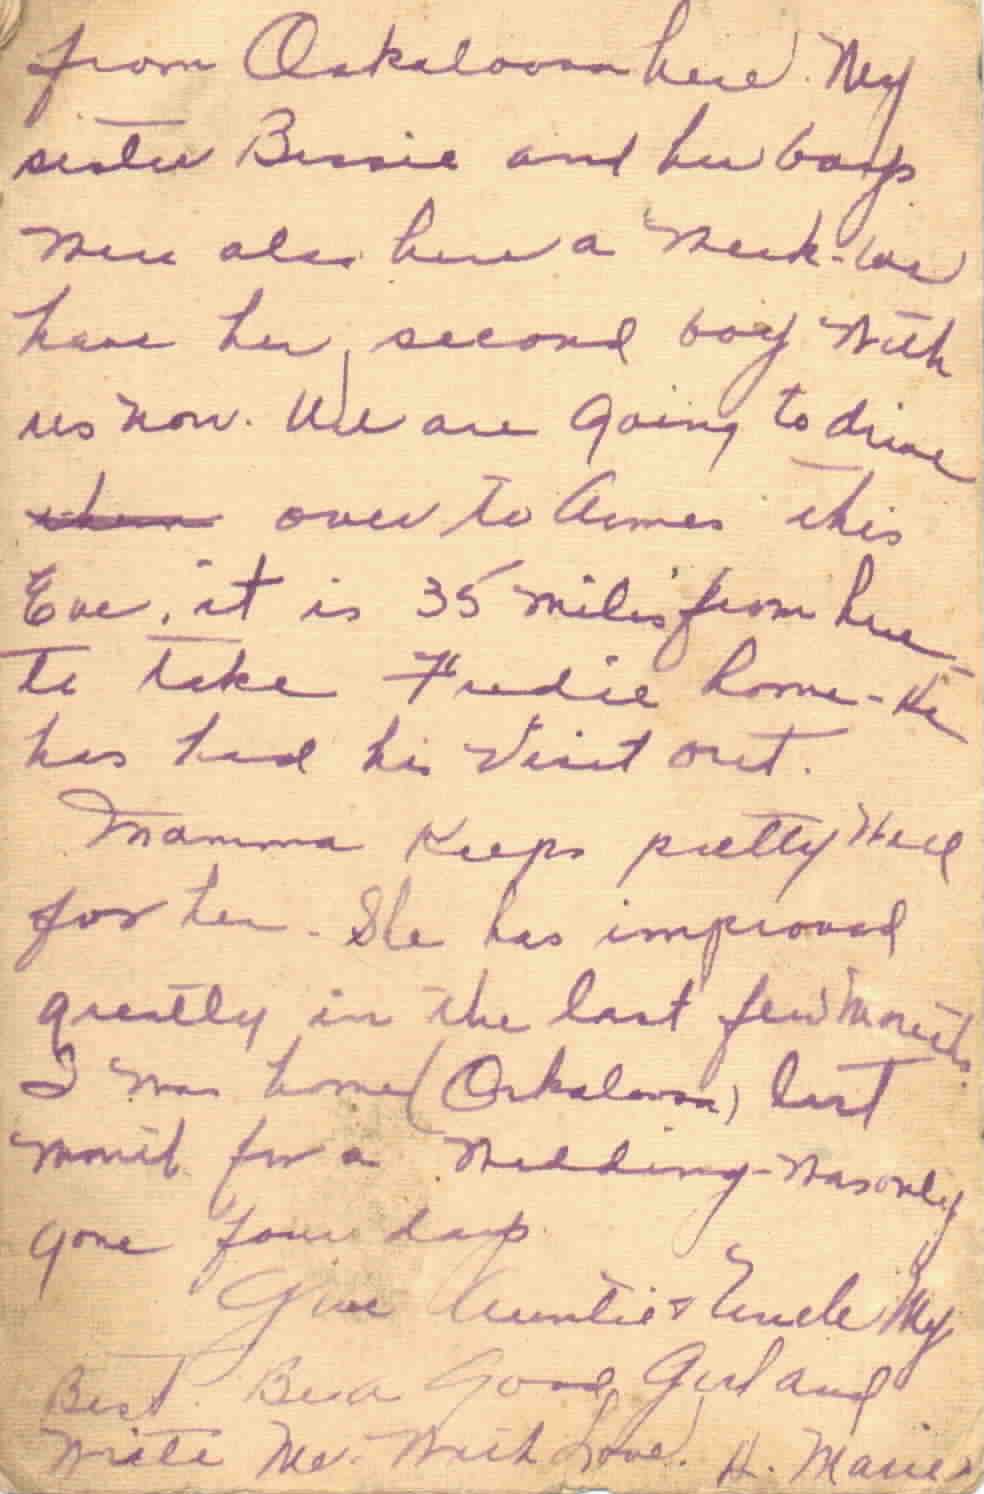 from Oskaloosa here. My
sister Bessie and her boys
were also here a week - we
have her second boy with
us now. We are going to drive
over to Ames this
Eve, it is 35 miles from here
to take Fredie home - He
has had his visit out.
Mamma keeps pretty well
for her. She has improved
greatly in the last few months.
I was home (Oskaloosa) last
month for a wedding - was only
gone four days.
Give Auntie & Uncle My
Best. Be a Good Girl and
Write Me. With Love. H. Marie.